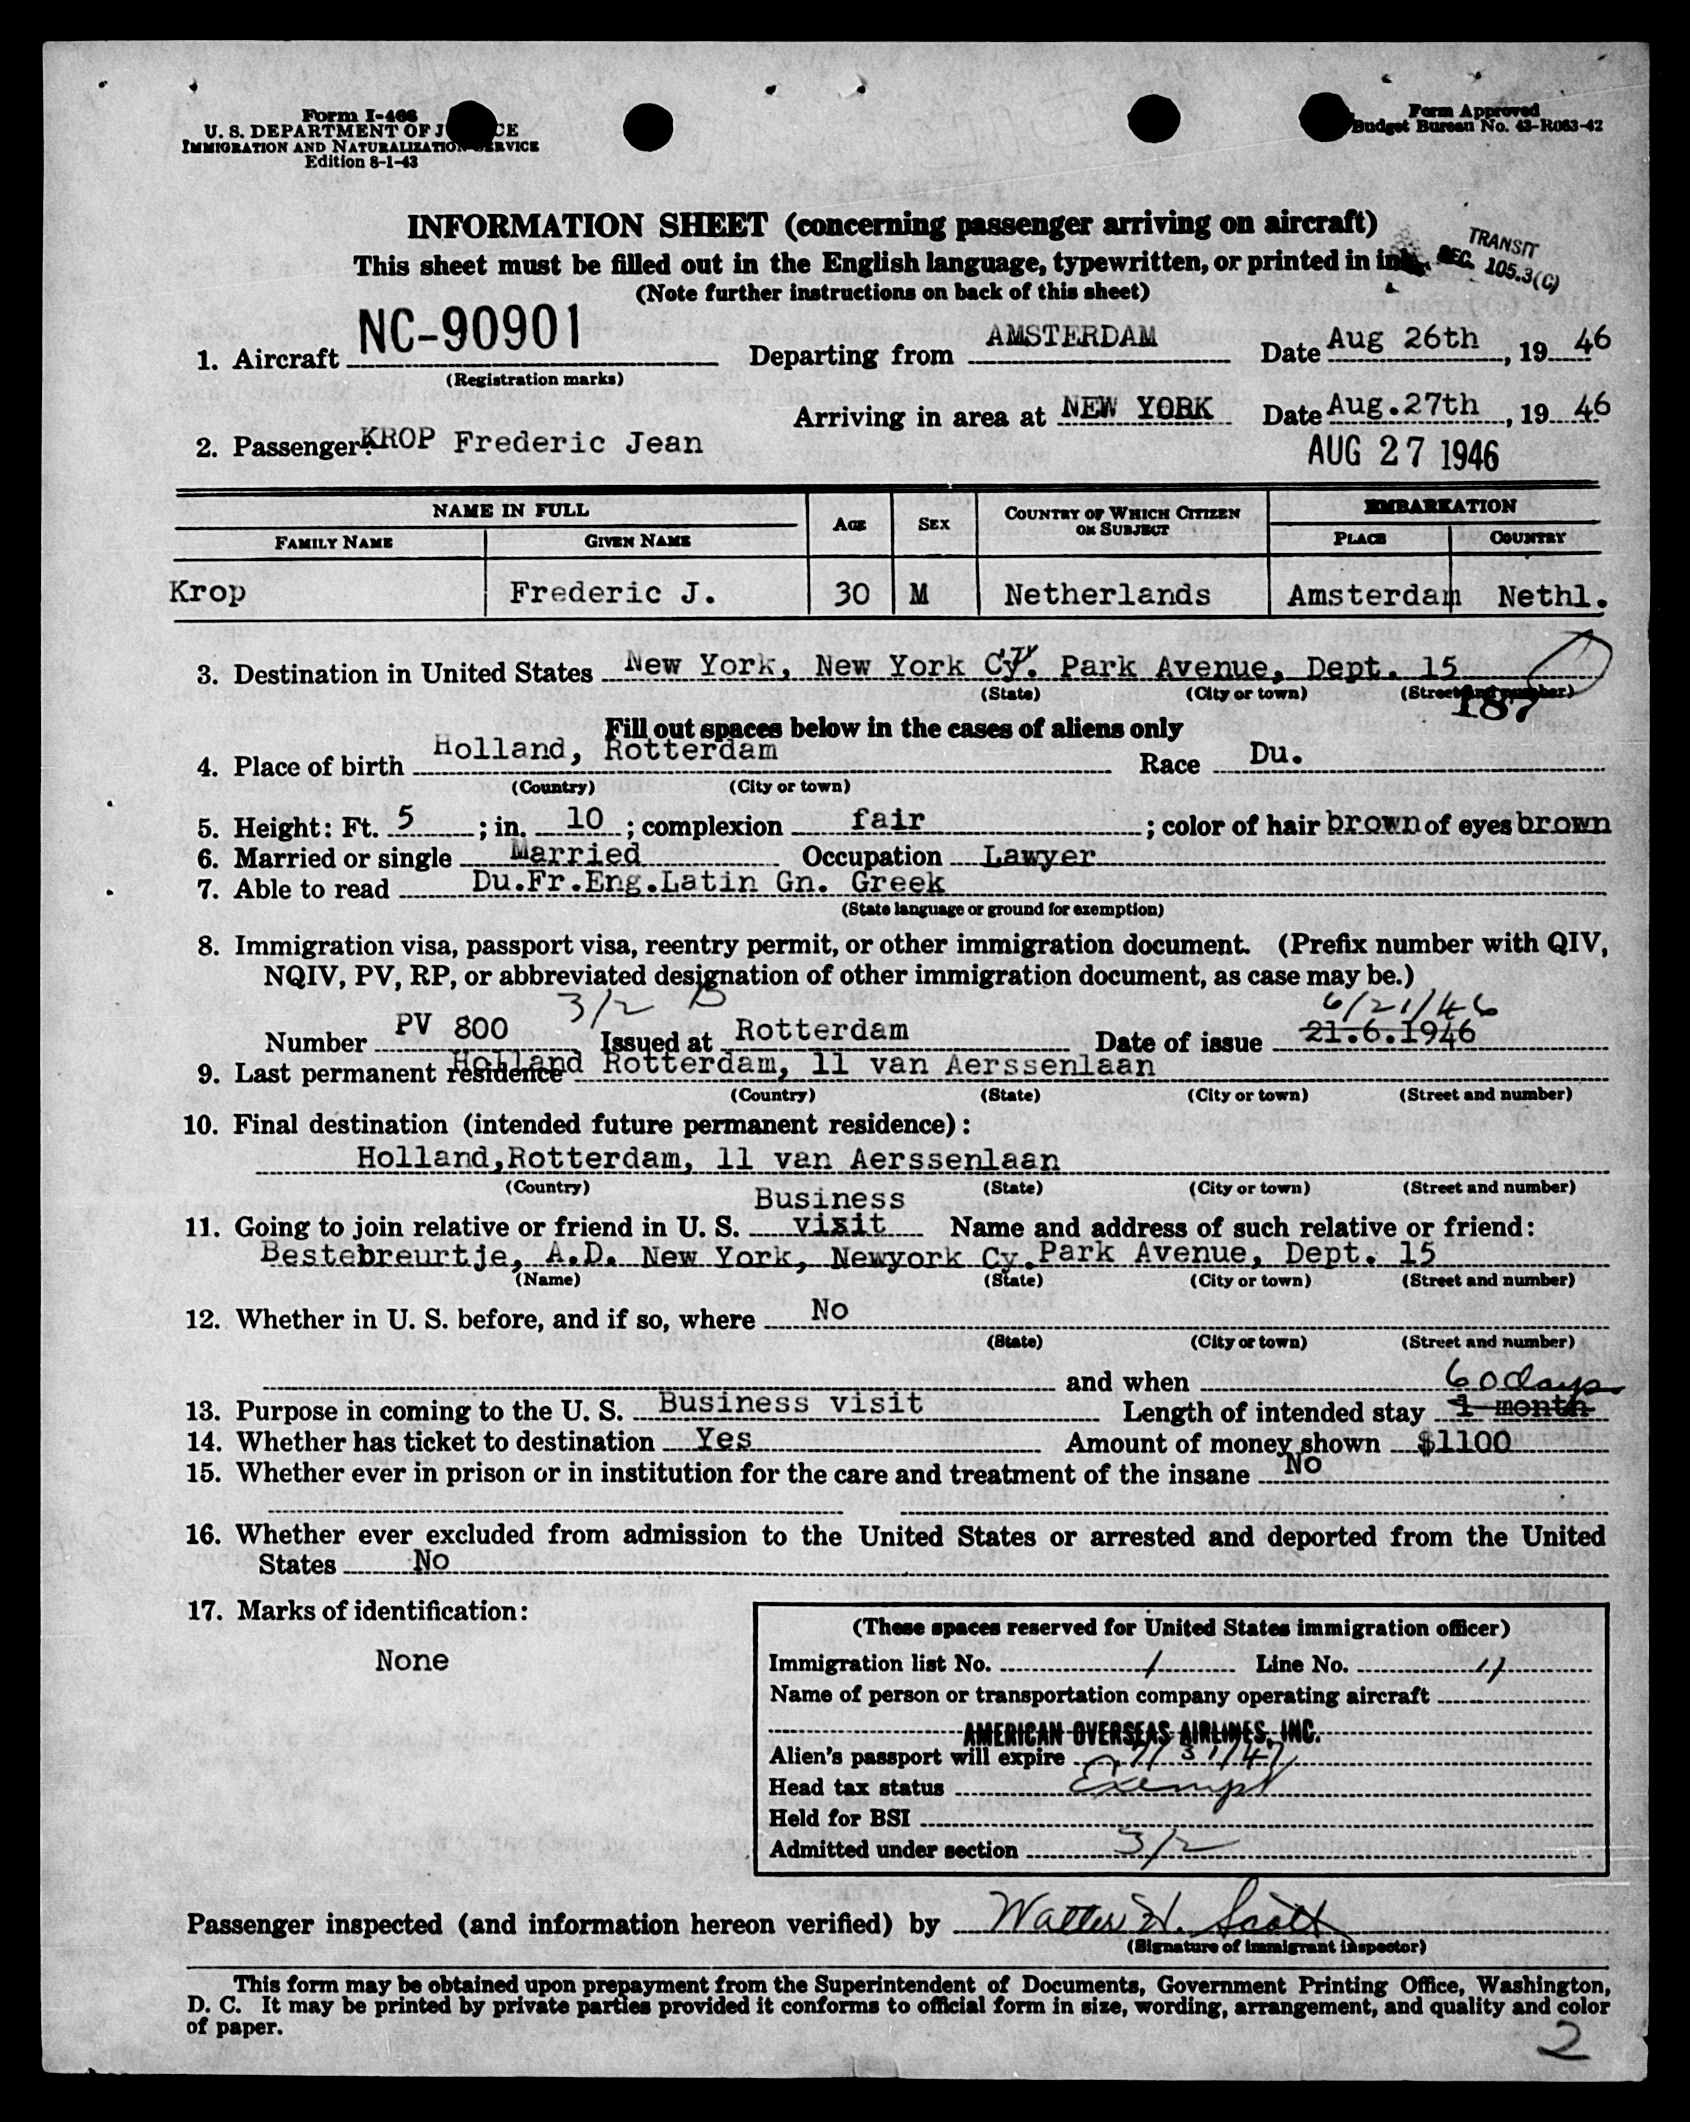 Form I-466
U. S. DEPARTMENT OF J CE
IMMIGRATION AND NATURALIZATION SERVICE
Edition 8-1-43
Form Approved
Budget Bureau No. 43-R063-42
INFORMATION SHEET (concerning passenger arriving on aircraft)
This sheet must be filled out in the English language, typewritten, or printed in ink.
TRANSIT
SEC. 105.3(C)
(Note further instructions on back of this sheet)
1. Aircraft NC-90901 Departing from AMSTERDAM Date Aug 26th, 19 46
(Registration marks)
Arriving in area at NEW YORK Date Aug.27th, 19 46
2. Passenger: KROP Frederic Jean AUG 27 1946
NAME IN FULL AGE SEX COUNTRY OF WHICH CITIZEN OR SUBJECT EMBARKATION
FAMILY NAME GIVEN NAME PLACE COUNTRY
Krop Frederic J. 30 M Netherlands Amsterdam Nethl.
3. Destination in United States New York, New York Cy. Park Avenue, Dept. 15
(State) (City or town) (Street and number)
187
Fill out spaces below in the cases of aliens only
4. Place of birth Holland, Rotterdam Race Du.
(Country) (City or town)
5. Height: Ft. 5 ; in. 10 ; complexion fair ; color of hair brown of eyes brown
6. Married or single Married Occupation Lawyer
7. Able to read Du.Fr.Eng.Latin Gn. Greek
(State language or ground for exemption)
8. Immigration visa, passport visa, reentry permit, or other immigration document. (Prefix number with QIV,
NQIV, PV, RP, or abbreviated designation of other immigration document, as case may be.)
3/2 B 6/21/46
Number PV 800 Issued at Rotterdam Date of issue 21.6.1946
9. Last permanent residence Holland Rotterdam, 11 van Aerssenlaan
(Country) (State) (City or town) (Street and number)
10. Final destination (intended future permanent residence):
Holland,Rotterdam, 11 van Aerssenlaan
(Country) (State) (City or town) (Street and number)
Business
11. Going to join relative or friend in U. S. visit Name and address of such relative or friend:
Bestebreurtje, A.D. New York, Newyork Cy.Park Avenue, Dept. 15
(Name) (State) (City or town) (Street and number)
12. Whether in U. S. before, and if so, where No
(State) (City or town) (Street and number)
and when
60 days
13. Purpose in coming to the U. S. Business visit Length of intended stay 1 month
14. Whether has ticket to destination Yes Amount of money shown $1100
15. Whether ever in prison or in institution for the care and treatment of the insane No
16. Whether ever excluded from admission to the United States or arrested and deported from the United
States No
17. Marks of identification:
None
(These spaces reserved for United States immigration officer)
Immigration list No. 1 Line No. 11
Name of person or transportation company operating aircraft
AMERICAN OVERSEAS AIRLINES, INC.
Alien's passport will expire 7/31/47
Head tax status Exempt
Held for BSI
Admitted under section 3/2
Passenger inspected (and information hereon verified) by Walter H. Scott
(Signature of immigrant inspector)
This form may be obtained upon prepayment from the Superintendent of Documents, Government Printing Office, Washington,
D. C. It may be printed by private parties provided it conforms to official form in size, wording, arrangement, and quality and color
of paper.
2